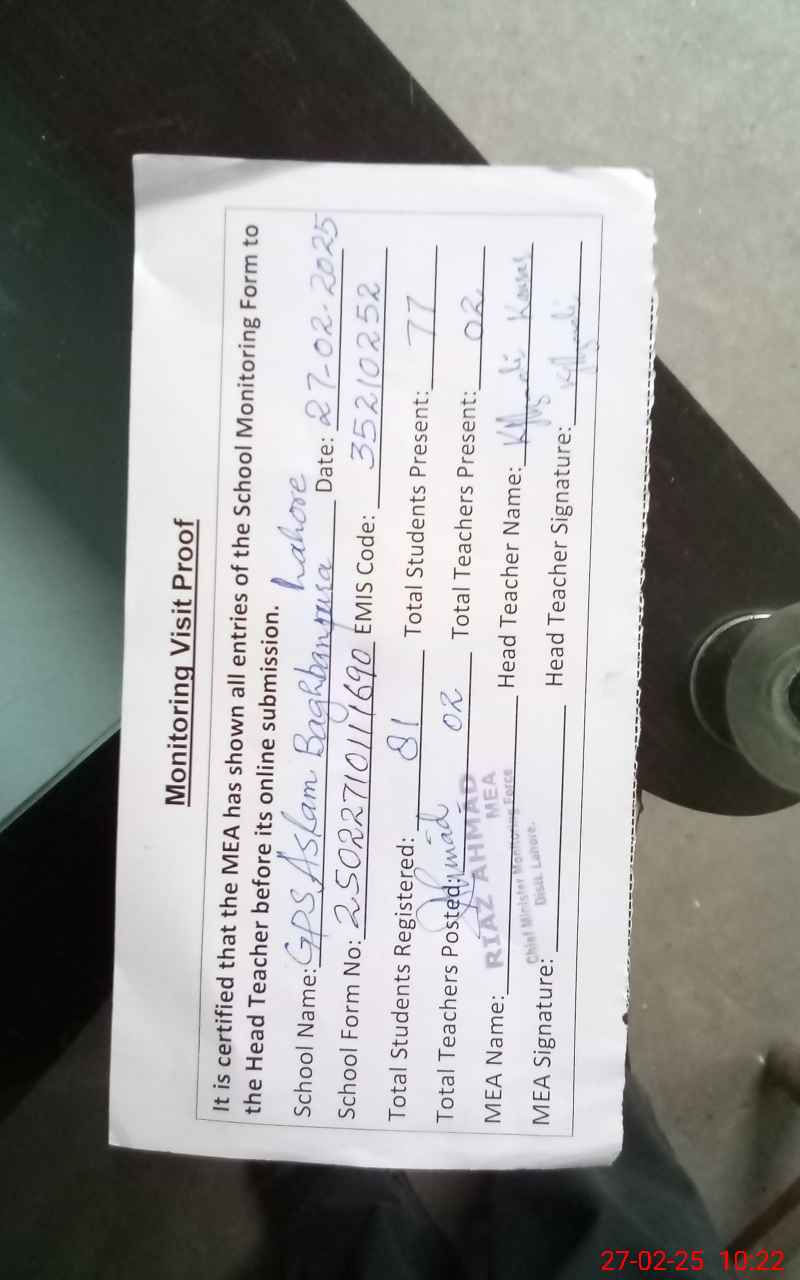 Monitoring Visit Proof
It is certified that the MEA has shown all entries of the School Monitoring Form to
the Head Teacher before its online submission.
School Name: GPS Aslam Baghbanpura Lahore Date: 27-02-2025
School Form No: 2502271011690 EMIS Code: 35210252
Total Students Registered: 81 Total Students Present: 77
Total Teachers Posted: 02 Total Teachers Present: 02
MEA Name: RIAZ AHMAD Head Teacher Name: Kausar
MEA
Chief Minister Monitoring Force
Distt. Lahore.
MEA Signature: Head Teacher Signature:
27-02-25 10:22